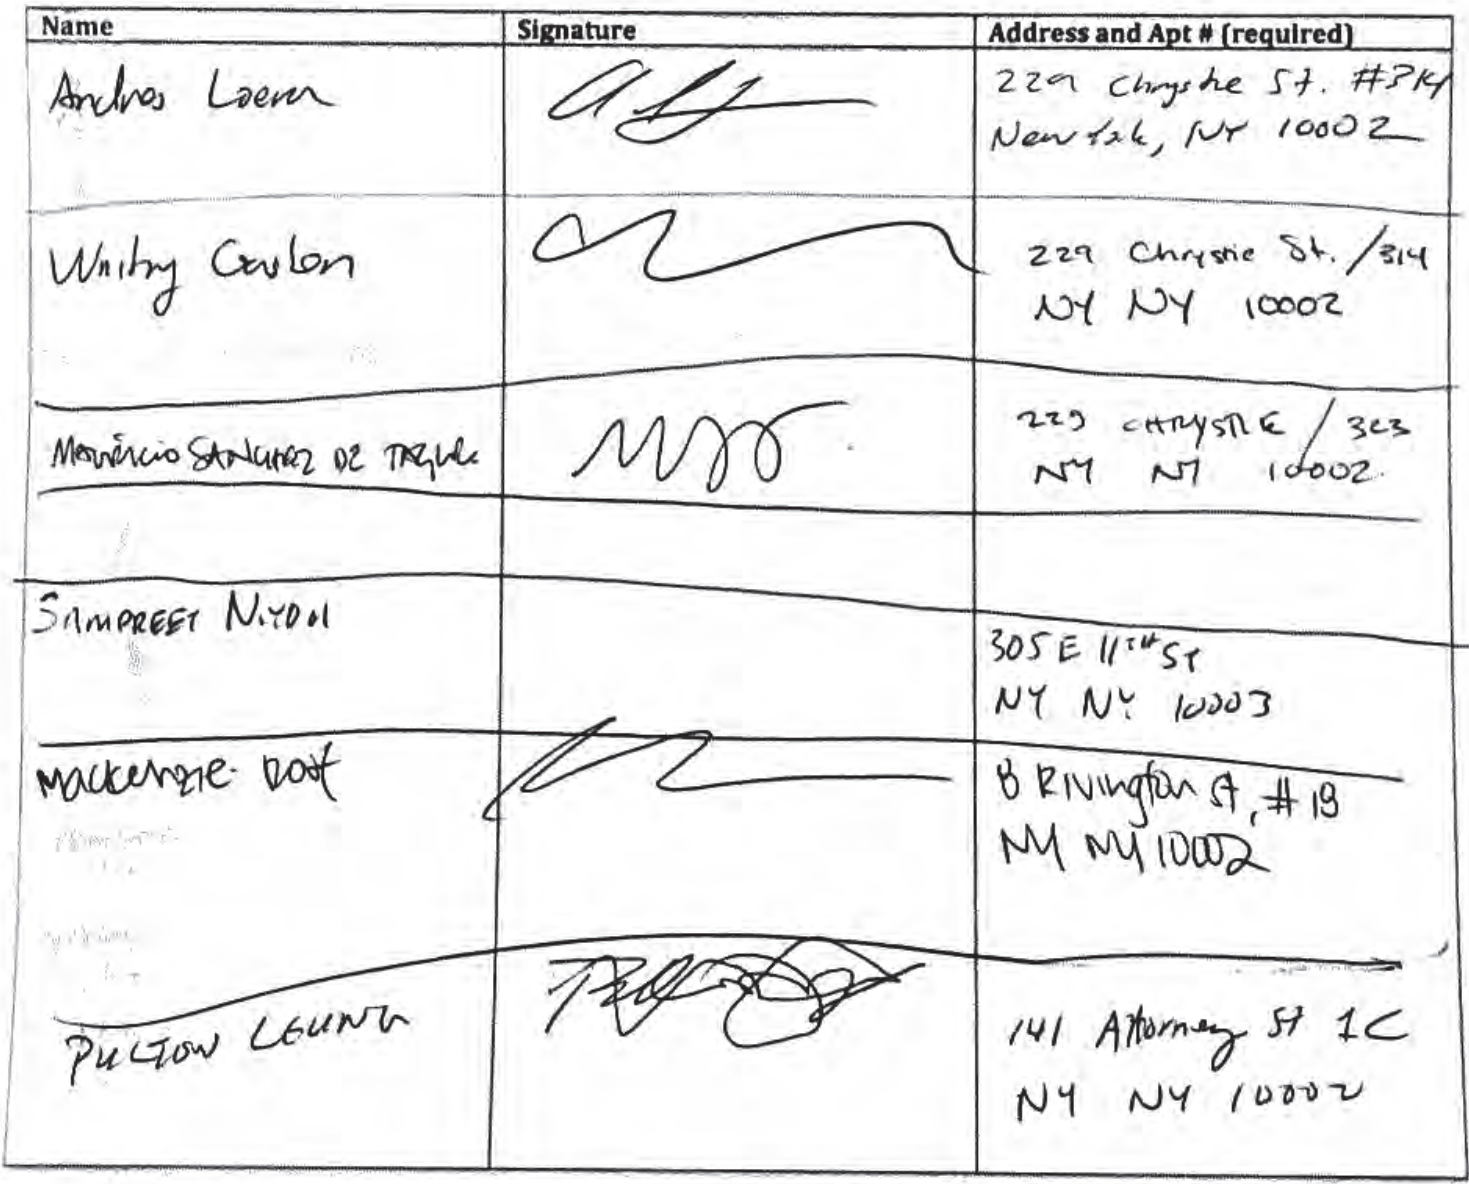 Name Signature Address and Apt # (required)
Andres Loera
229 Chrystie St. #314
New York, NY 10002
Carlson
229 Chrystie St. /314
NY NY 10002
SANCHEZ DE
229 CHRYSTIE / 323
NY NY 10002
SAMPREET
305 E 11TH ST
NY NY 10003
Mackenzie
8 Rivington St, #19
NY NY 10002
LEUNG
141 Attorney St 1C
NY NY 10002